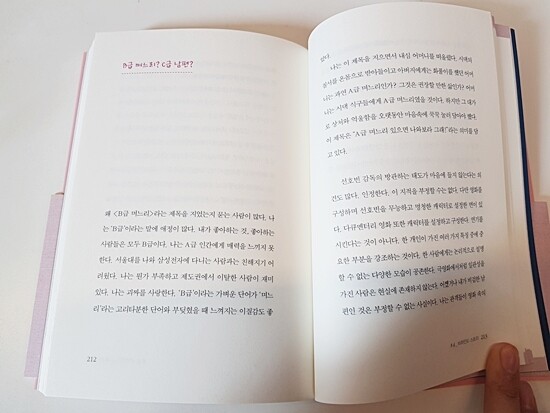 B급 며느리? C급 남편?
왜 <B급 며느리>라는 제목을 지었는지 묻는 사람이 많다. 나
는 'B급'이라는 말에 애정이 많다. 내가 좋아하는 것, 좋아하는
사람들은 모두 B급이다. 나는 A급 인간에게 매력을 느끼지 못
한다. 서울대를 나와 삼성전자에 다니는 사람과는 친해지기 어
려웠다. 나는 뭔가 부족하고 제도권에서 이탈한 사람이 재미
있다. 나는 괴짜를 사랑한다. 'B급'이라는 가벼운 단어가 '며느
리'라는 고리타분한 단어와 부딪혔을 때 느껴지는 이질감도 좋
212
았다.
나는 이 제목을 지으면서 내심 어머니를 떠올렸다. 시대의
질서를 온몸으로 받아들이고 아버지에게는 화풀이를 했던 어머
니는 과연 A급 며느리인가? 그것은 권장할 만한 삶인가? 어머
니는 시댁 식구들에게 A급 며느리였을 것이다. 하지만 그 대가
로 상처와 억울함을 오랫동안 마음속에 꾹꾹 눌러 담아야 했다.
이 제목은 "A급 며느리 있으면 나와보라 그래!"라는 의미를 담
고 있다.
선호빈 감독의 방관하는 태도가 마음에 들지 않는다는 의
견도 많다. 인정한다. 이 지적을 부정할 수는 없다. 다만 영화를
구성하며 선호빈을 무능하고 멍청한 캐릭터로 설정한 면이 있
다. 다큐멘터리 영화 또한 캐릭터를 설정하고 구성한다. 연기를
시킨다는 것이 아니다. 한 개인이 가진 여러 가지 특징 중에 중
요한 부분을 강조하는 것이다. 한 사람에게는 논리적으로 설명
할 수 없는 다양한 모습이 공존한다. 극영화에서처럼 일관성을
가진 사람은 현실에 존재하지 않는다. 어쨌거나 내가 비겁한 남
편인 것은 부정할 수 없는 사실이다. 나는 관객들이 영화 속의
213